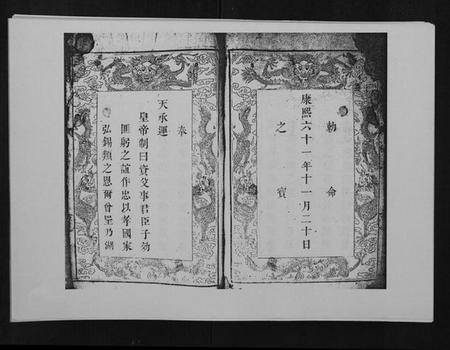 勅命
康熙六十一年十一月二十日
之寶
奉
天承運
皇帝制曰資父事君臣子効
匪躬之誼作忠以孝國家
弘錫類之恩爾曾
乃湖